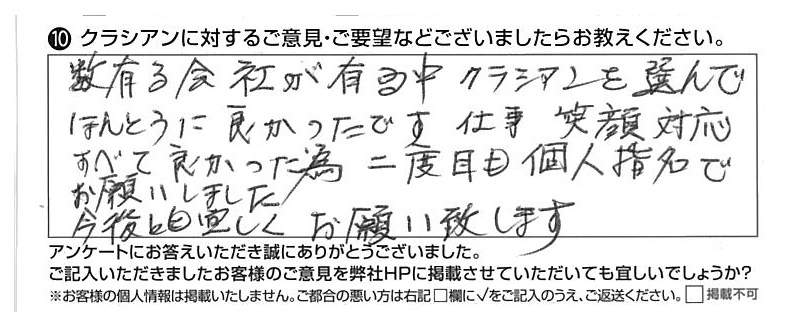 ⑩ クラシアンに対するご意見・ご要望などございましたらお教えください。
数有る会社が有る中クラシアンを選んで
ほんとうに良かったです 仕事 笑顔 対応
すべて良かった為 二度目も個人指名で
お願いしました
今後とも宜しくお願い致します
アンケートにお答えいただき誠にありがとうございました。
ご記入いただきましたお客様のご意見を弊社HPに掲載させていただいても宜しいでしょうか?
※お客様の個人情報は掲載いたしません。ご都合の悪い方は右記□欄に√をご記入のうえ、ご返送ください。 □ 掲載不可